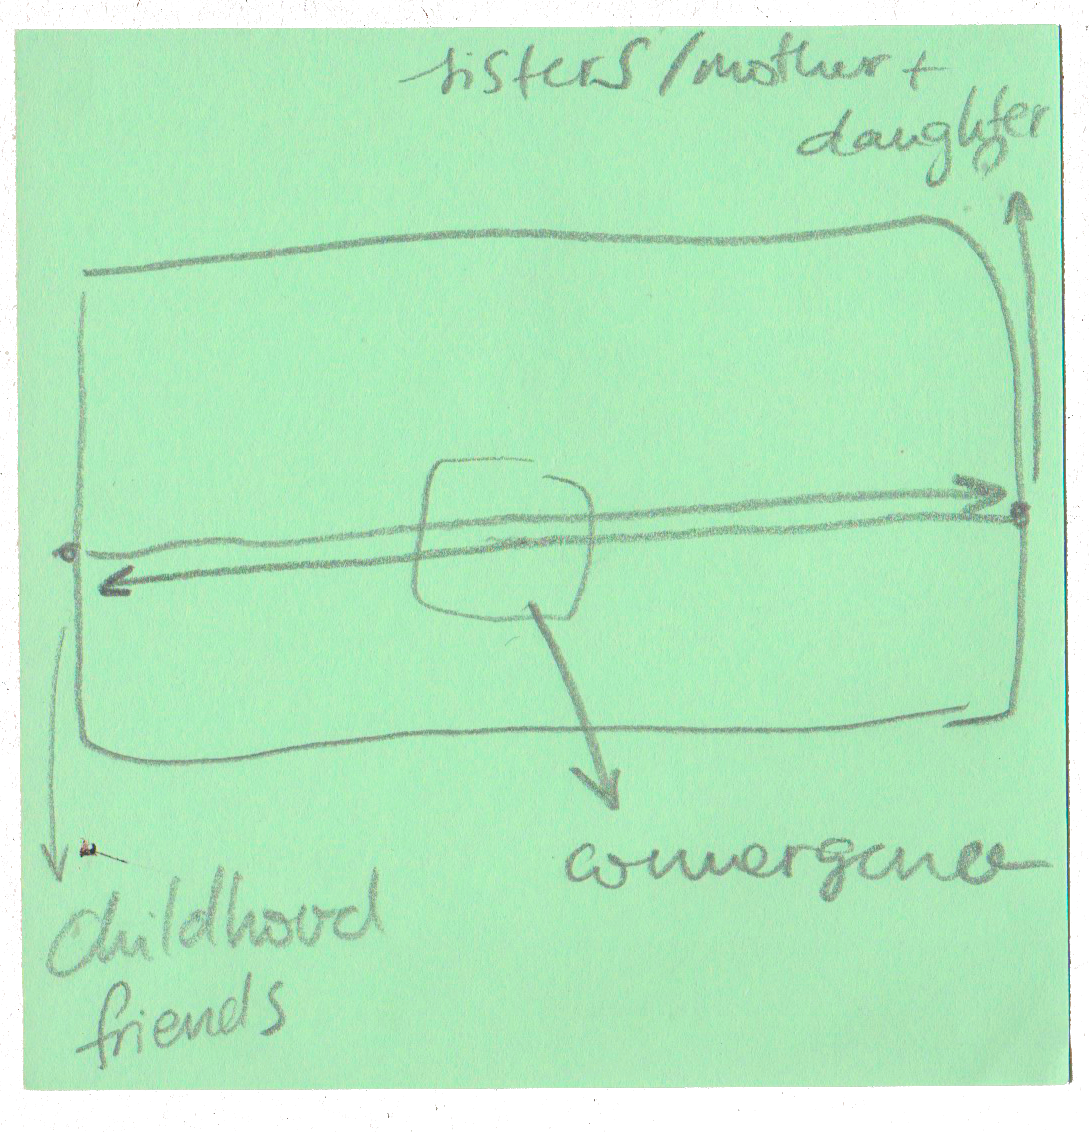 sisters / mother +
daughter
convergence
Childhood
friends